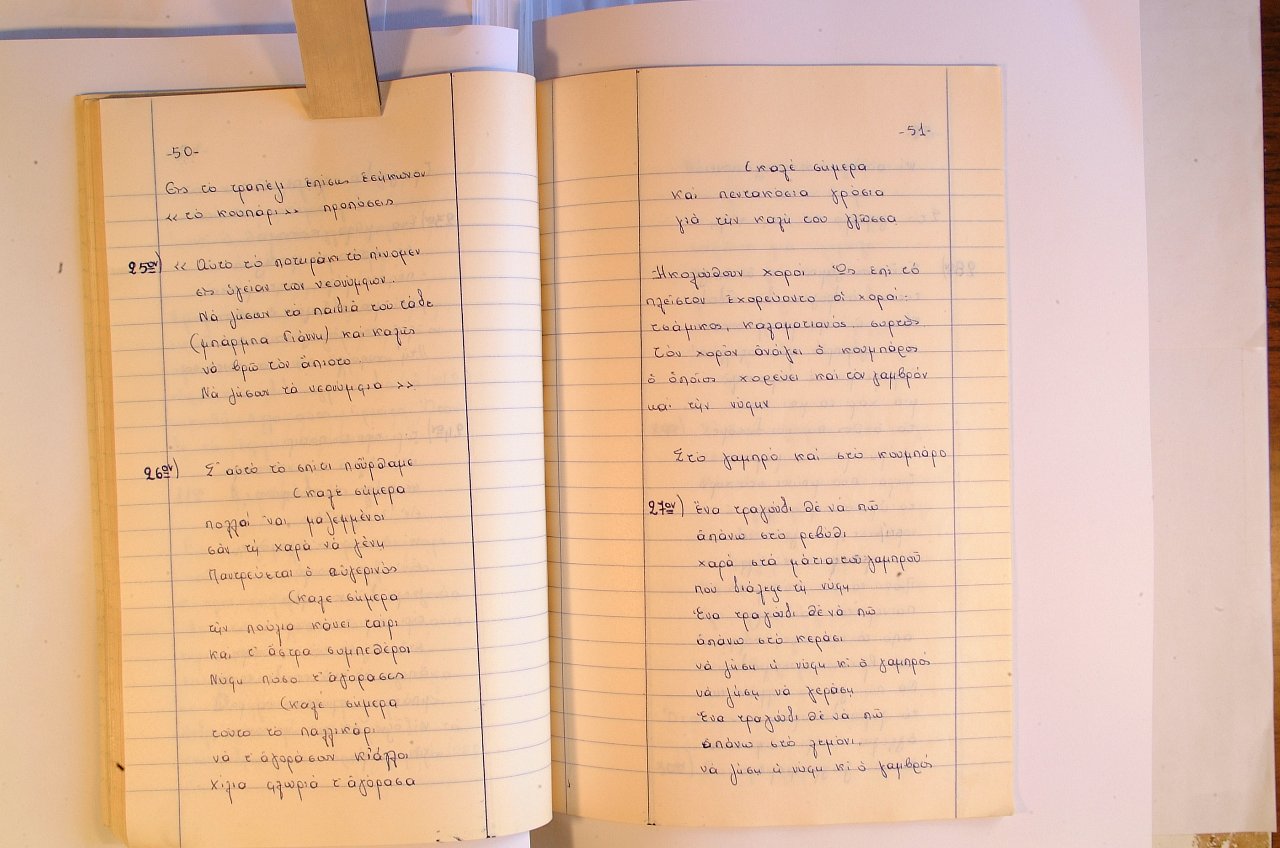 -50-
Εἰς τὸ τραπέζι ἐπίσης ἐσήκωνον
«τὸ κουπάρι» προπόσεις
25ον) « Αὐτὸ τὸ ποτηράκι τὸ πίνομεν
εἰς ὑγείαν των νεονύμφων.
Νὰ ζήσουν τὰ παιδιὰ τοῦ τάδε
(μπάρμπα Γιάννη) καὶ καλῶς
νὰ βρῶ τὸν ἄπιστο.
Νὰ ζήσουν τὰ νεονύμφια »
26ον) Σ' αὐτὸ τὸ σπίτι ποὔρθαμε
(καλὲ σήμερα
πολλοί 'ναι μαζεμμένοι
σὰν τὴ χαρὰ νὰ γένη
Παντρεύεται ὁ αὐγερινὸς
(καλὲ σήμερα
τὴν πούλια κάνει ταίρι
καὶ τ' ἄστρα συμπεθέροι
Νύφη πόσο τ' ἀγόρασες
(καλέ σήμερα
τοῦτο τὸ παλλικάρι
νὰ τ' ἀγοράσουν κι ἄλλοι
Χίλια φλωριά τ' ἀγόρασα
-51-
(καλέ σήμερα
καὶ πεντακόσια γρόσια
γιὰ τὴν καλή σου γλῶσσα
Ἠκολούθουν χοροί. Ὡς ἐπὶ τό
πλεῖστον ἐχορεύοντο οἱ χοροί:
τσάμικος, καλαματιανός, συρτὸς
τὸν χορὸν ἀνοίγει ὁ κουμπάρος
ὁ ὁποῖος χορεύει καὶ τὸν γαμβρόν
καὶ τὴν νύφην
Στὸ γαμπρό καὶ στὸ κουμπάρο
27ον) Ἕνα τραγούδι θὲ νὰ πῶ
ἀπάνω στὸ ρεβύθι
χαρά στὰ μάτια τοῦ γαμπροῦ
ποὺ διάλεξε τὴ νύφη
Ἕνα τραγούδι θὲ νὰ πῶ
ἀπάνω στὸ κεράσι
νὰ ζήση ἡ νύφη κι ὁ γαμπρός
νὰ ζήση νὰ γεράση
Ἕνα τραγούδι θὲ νὰ πῶ
ἀπάνω στὸ λεμόνι
νὰ ζήση ἡ νύφη κι ὁ γαμβρός